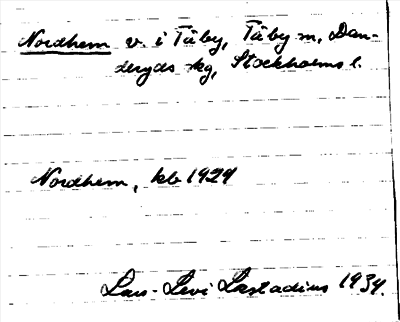 Nordhem v. i Täby, Täby sn, Dan-
deryds skg, Stockholms l.
Nordhem, kb 1924
Lars-Levi Læstadius 1934.